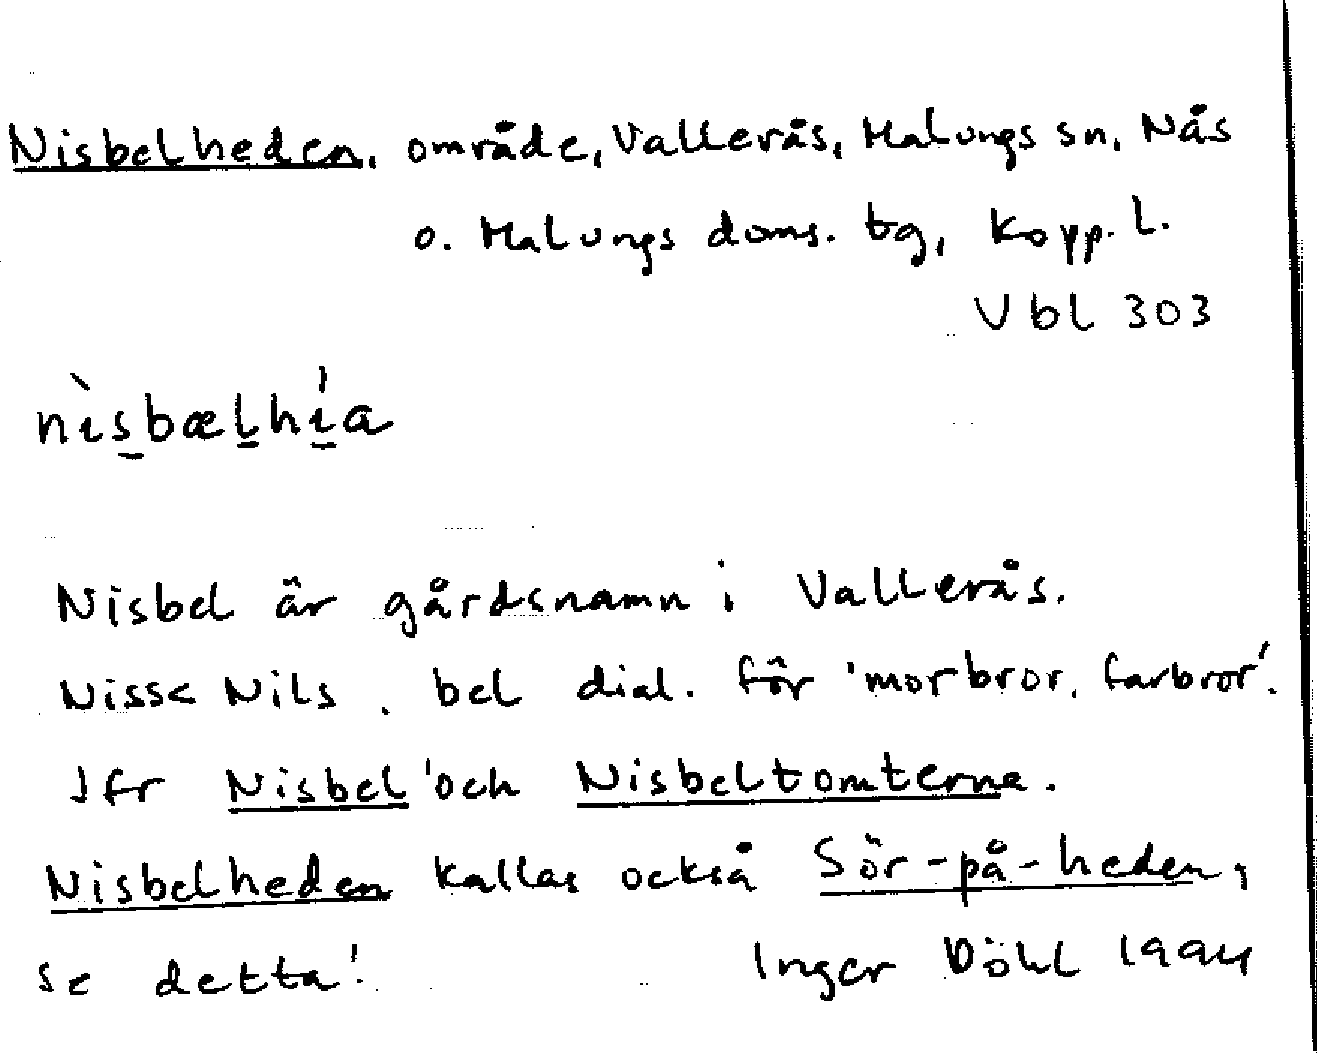 Nisbelheden, område, Vallerås, Malungs sn, Nås
o. Malungs doms. tg, Kopp. L.
Vbl 303
nìsbælhía
Nisbel är gårdsnamn i Vallerås.
Nisse Nils, bel dial. för 'morbror, farbror'.
Jfr Nisbel och Nisbeltomterna.
Nisbelheden kallas också Sör-på-heden,
se detta! Inger Döhl 1994